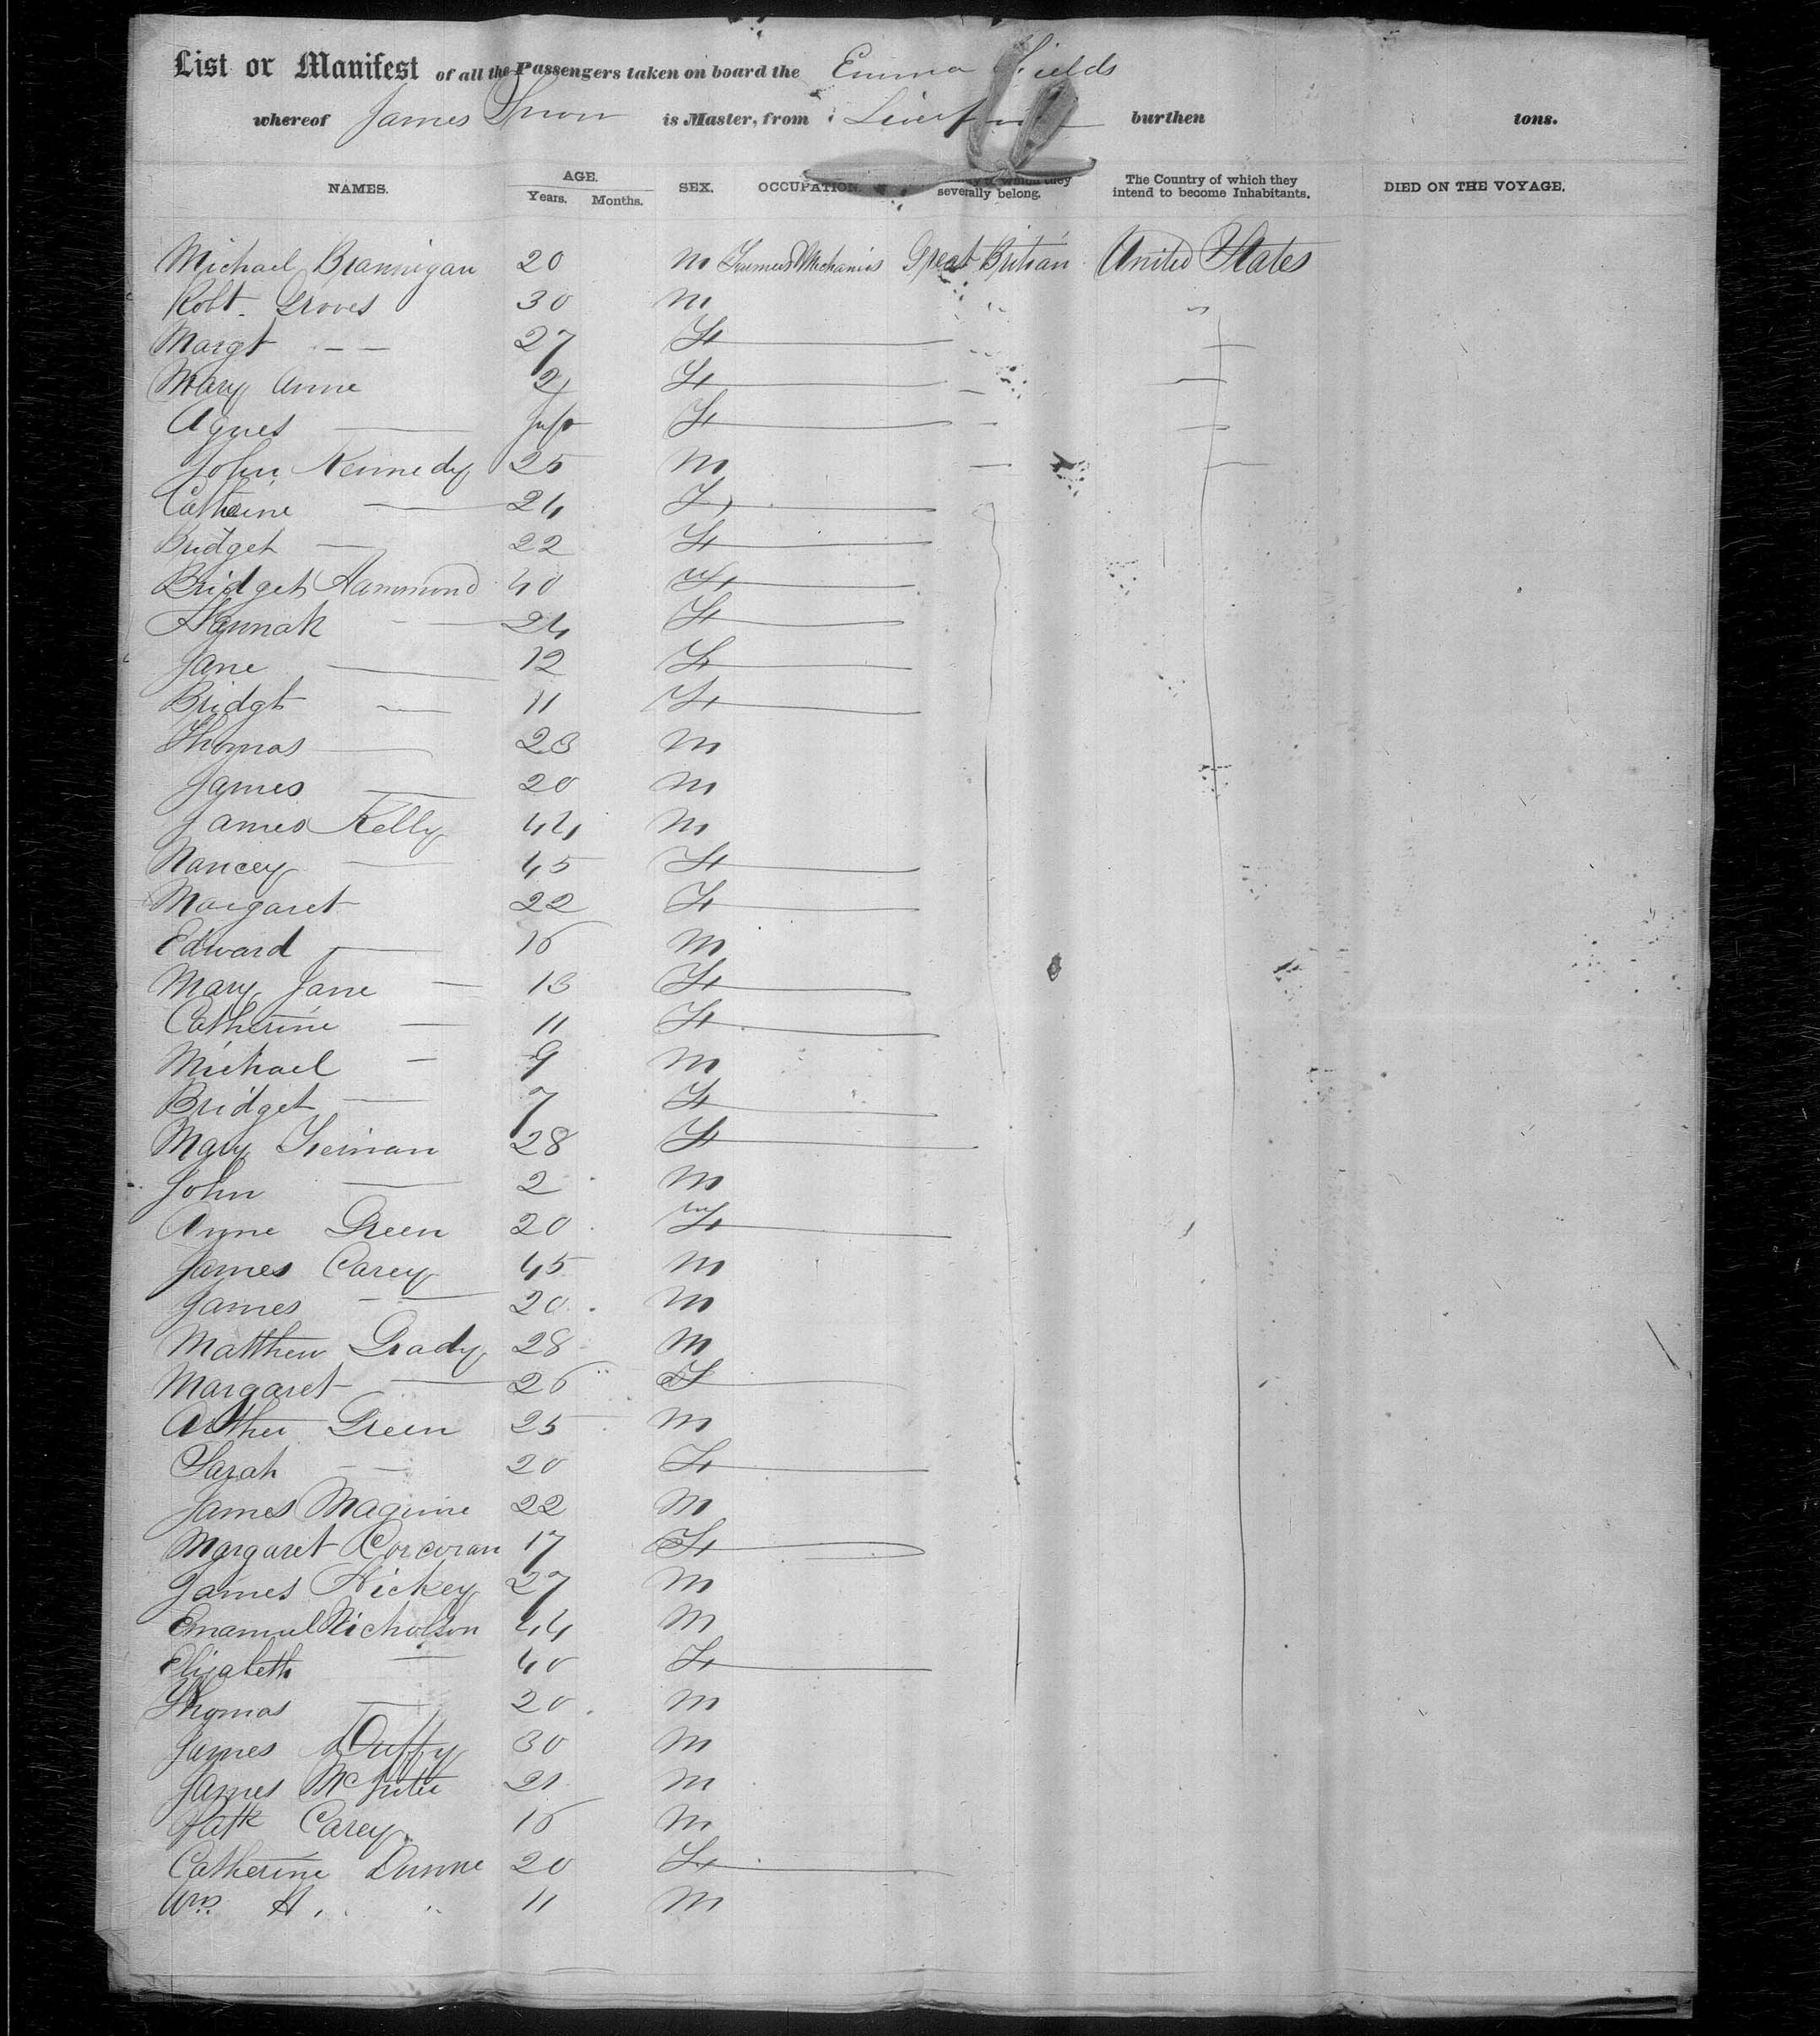 List or Manifest of all the Passengers taken on board the Emma Fields
whereof James Snow is Master, from Liverpool burthen tons.
NAMES. AGE. Years. Months. SEX. OCCUPATION. which they severally belong. The Country of which they intend to become Inhabitants. DIED ON THE VOYAGE.
Michael Brannigan 20 M Farmers & Mechanics Great Britian United States
Robt. Groves 30 M
Margt — — 27 F
Mary Anne 2 F
Agnes — Inft F
John Kennedy 25 M
Catheine — 24 F
Bridget — 22 F
Bridget Hammond 40 F
Hannah — 24 F
Jane — 12 F
Bridgt — 11 F
Thomas — 23 M
James — 20 M
James Kelly 44 M
Nancey — 45 F
Margaret 22 F
Edward — 16 M
Mary Jane — 13 F
Catherine — 11 F
Michael — 9 M
Bridget — 7 F
Mary 28 F
John — 2 M
Anne Green 20 F
James Carey 45 M
James — 20 M
Matthew Grady 28 M
Margaret — 26 F
Arther Green 25 M
Sarah — 20 F
James Maguire 22 M
Margaret Corcoran 17 F
James Hickey 27 M
Emanuel Nicholson 44 M
Elizabeth — 40 F
Thomas — 20 M
James Duffy 30 M
James 21 M
Patk Carey 16 M
Catherine Dunne 20 F
Wm. H. " 11 M